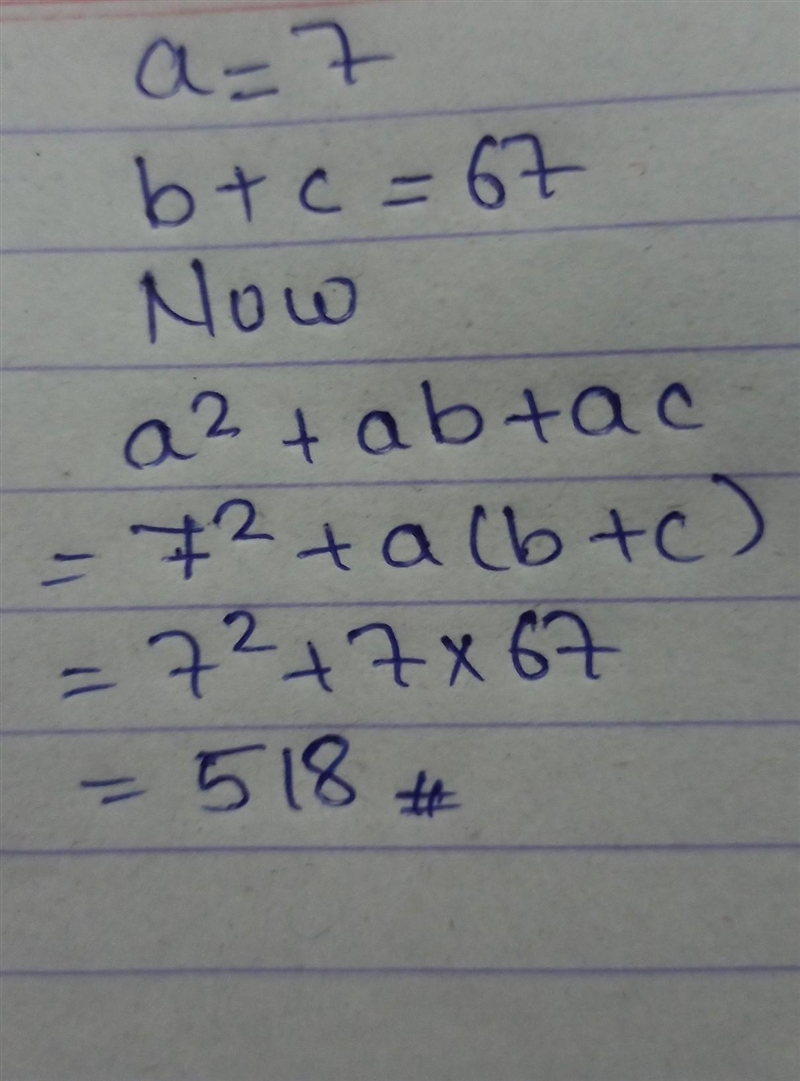 a = 7
b + c = 67
Now
a² + ab + ac
= 7² + a(b + c)
= 7² + 7 × 67
= 518 #